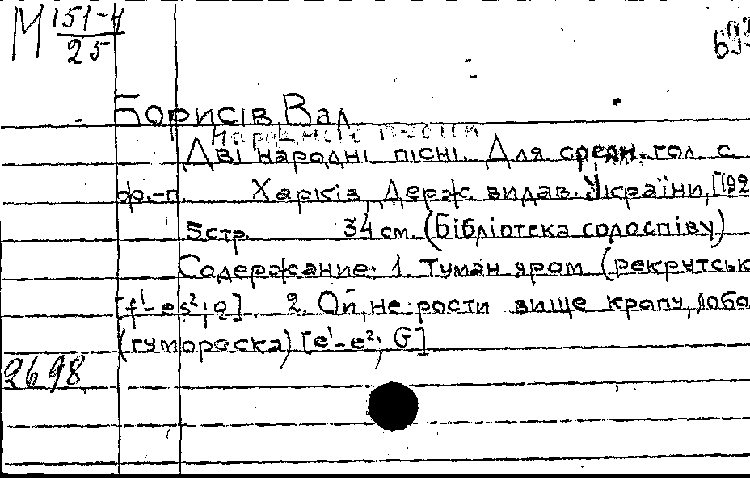 М 151-4
25
Борисів, Вал.
Дві народні пісні. Для средн. гол. с
ф.-п. Харків, Держ. видав. України, [192
5 стр. 34 см. (Бібліотека солоспіву)
Содержание: 1. Туман яром (рекрутськ
[f¹-es²; g]. 2. Ой, не рости вище кропу, лобо
(гумореска) [e¹-e²; G]
2698